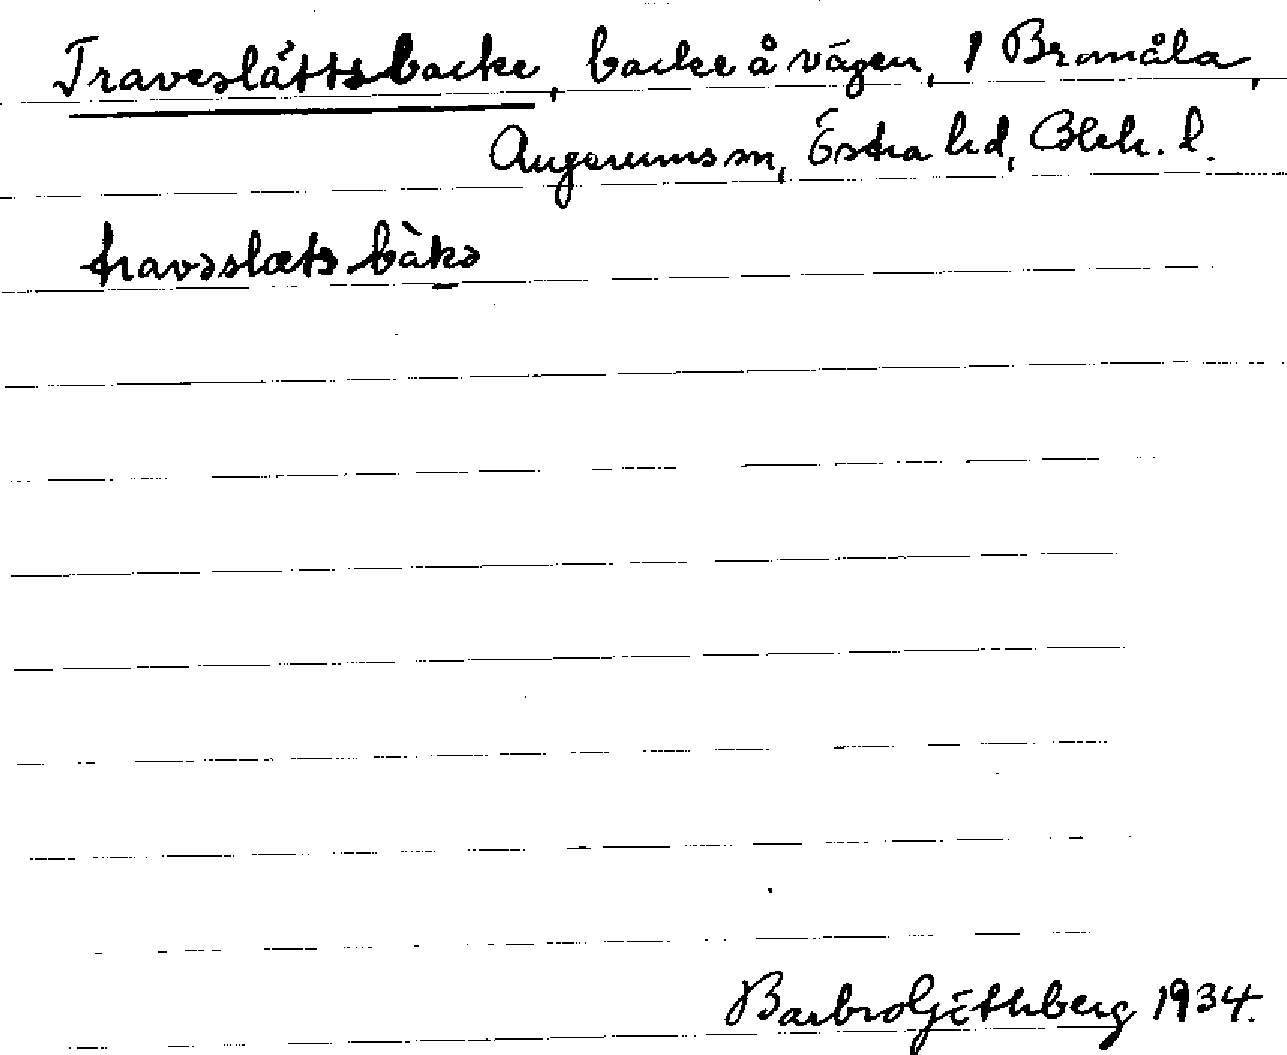 Traveslättsbacke, backe å vägen, 1 Bromåla,
Augerums sn, Östra hd, Blek. l.
travəslæts bàkə
Barbro Göthberg 1934.